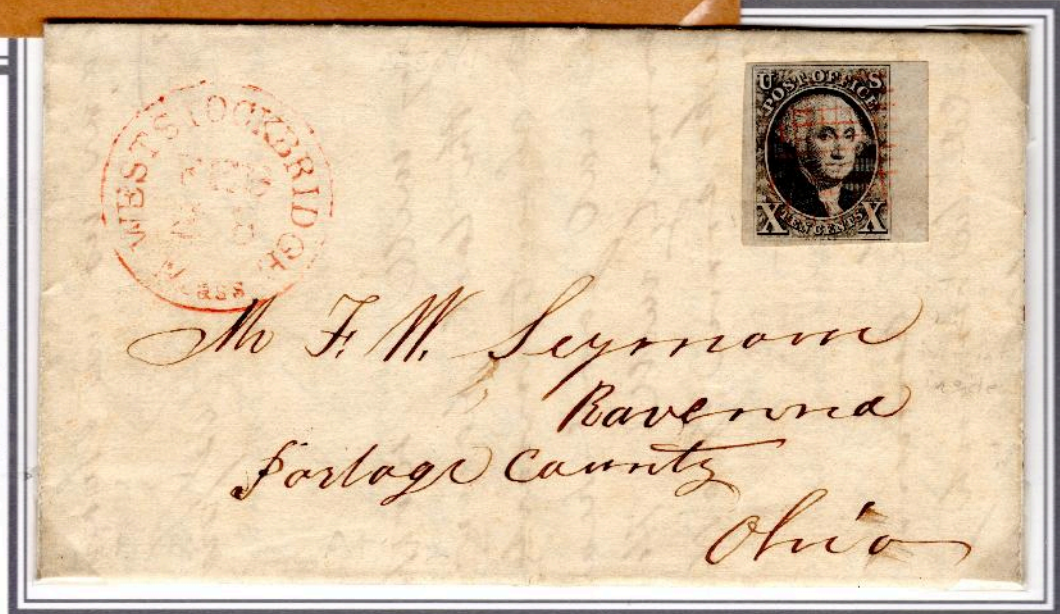 WEST STOCKBRIDGE
FEB
Mass
U S
POST OFFICE
X TEN CENTS X
Mr F. W. Seymour
Ravenna
Portage County
Ohio